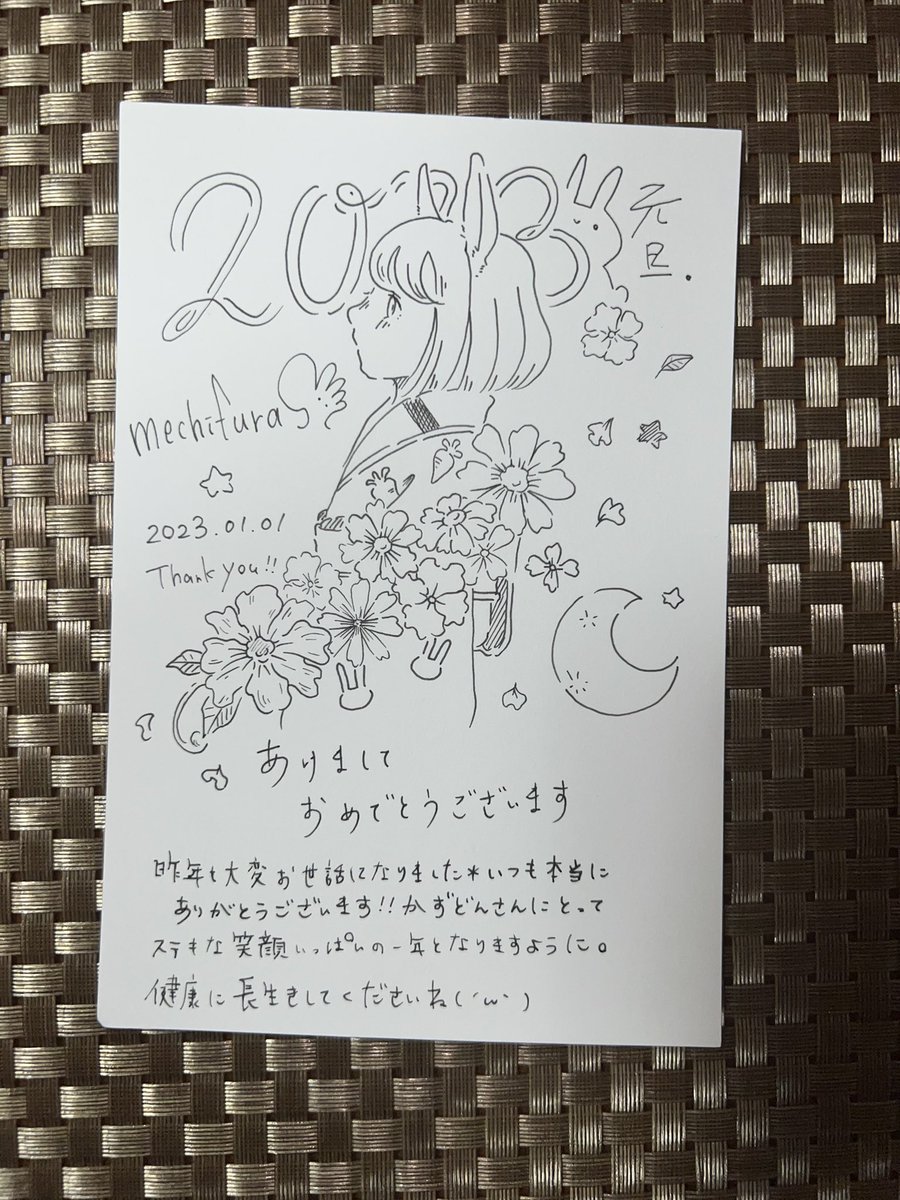 2023 元旦.
mechifura
2023.01.01
Thank you!!
あけまして
おめでとうございます
昨年も大変お世話になりました*いつも本当に
ありがとうございます!!かずどんさんにとって
ステキな笑顔いっぱいの一年となりますように。
健康に長生きしてくださいね(´ω`)